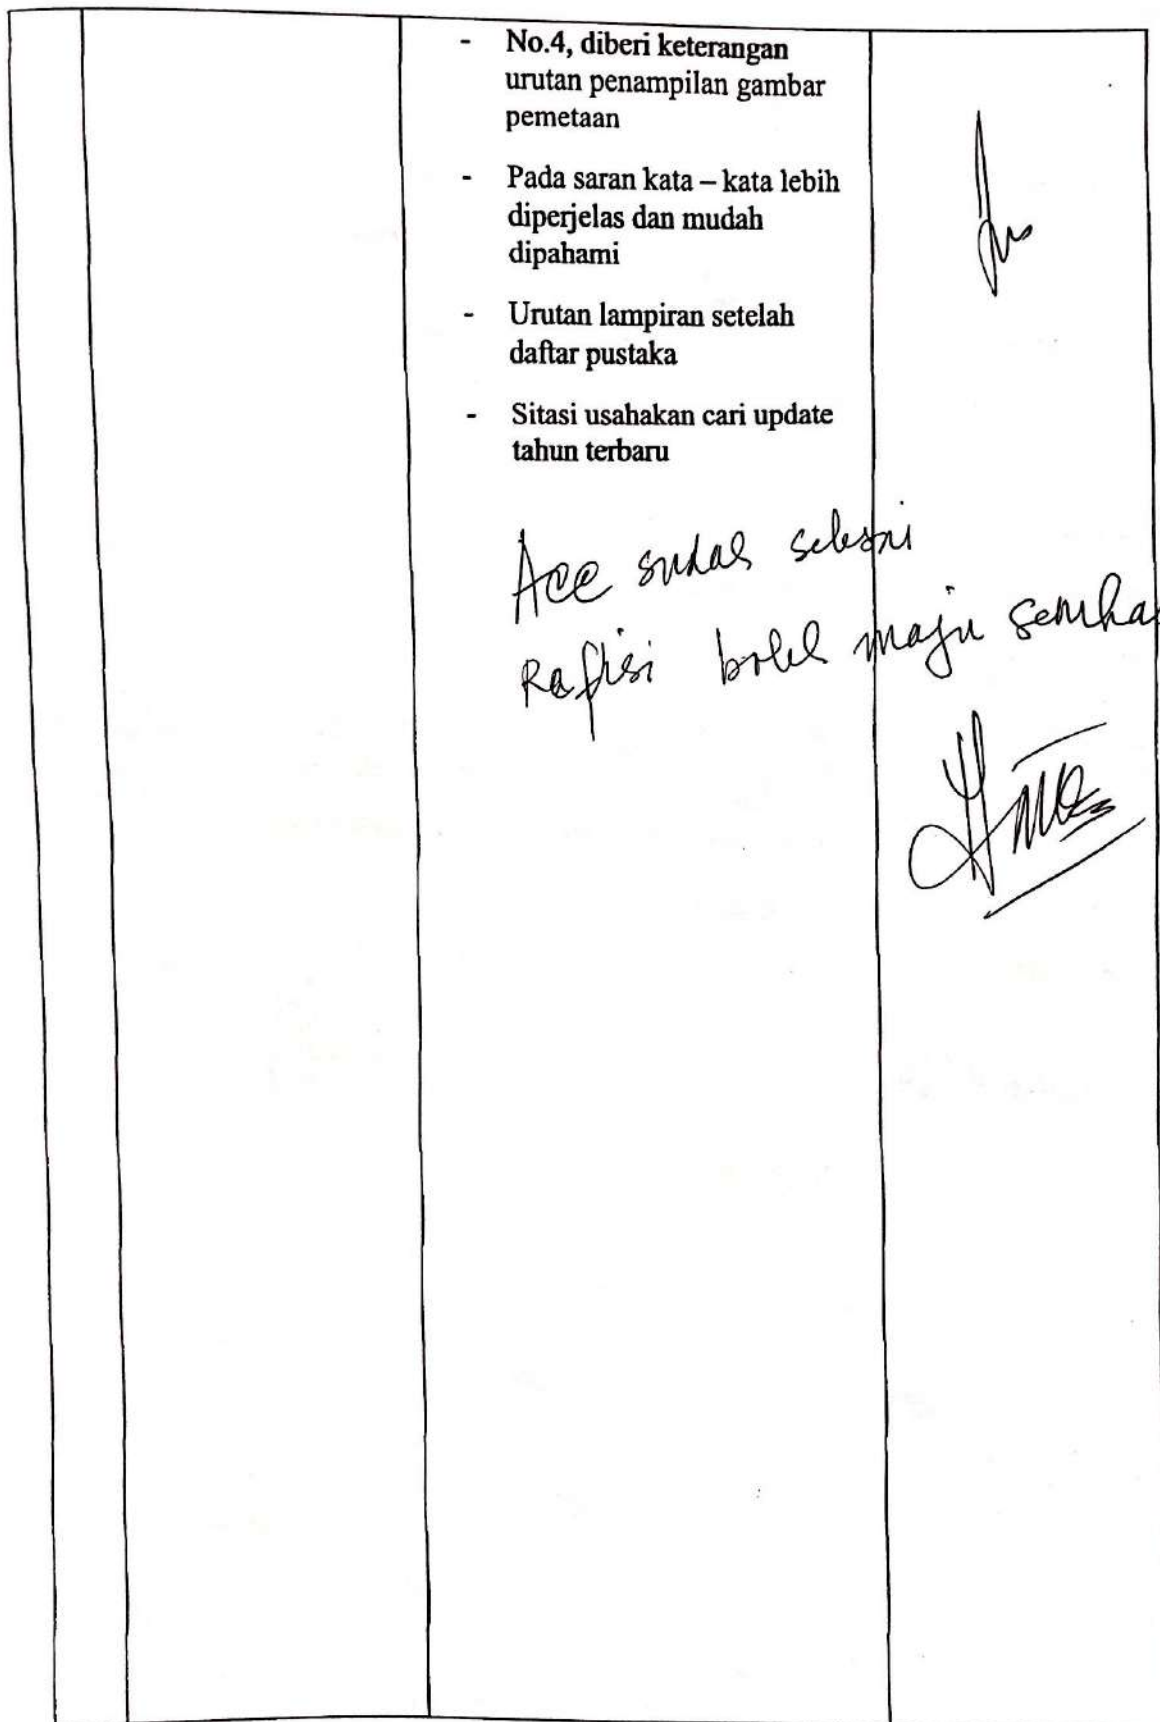 - No.4, diberi keterangan
urutan penampilan gambar
pemetaan
- Pada saran kata – kata lebih
diperjelas dan mudah
dipahami
- Urutan lampiran setelah
daftar pustaka
- Sitasi usahakan cari update
tahun terbaru
Acc sudah selesai
Rafisi boleh maju semha